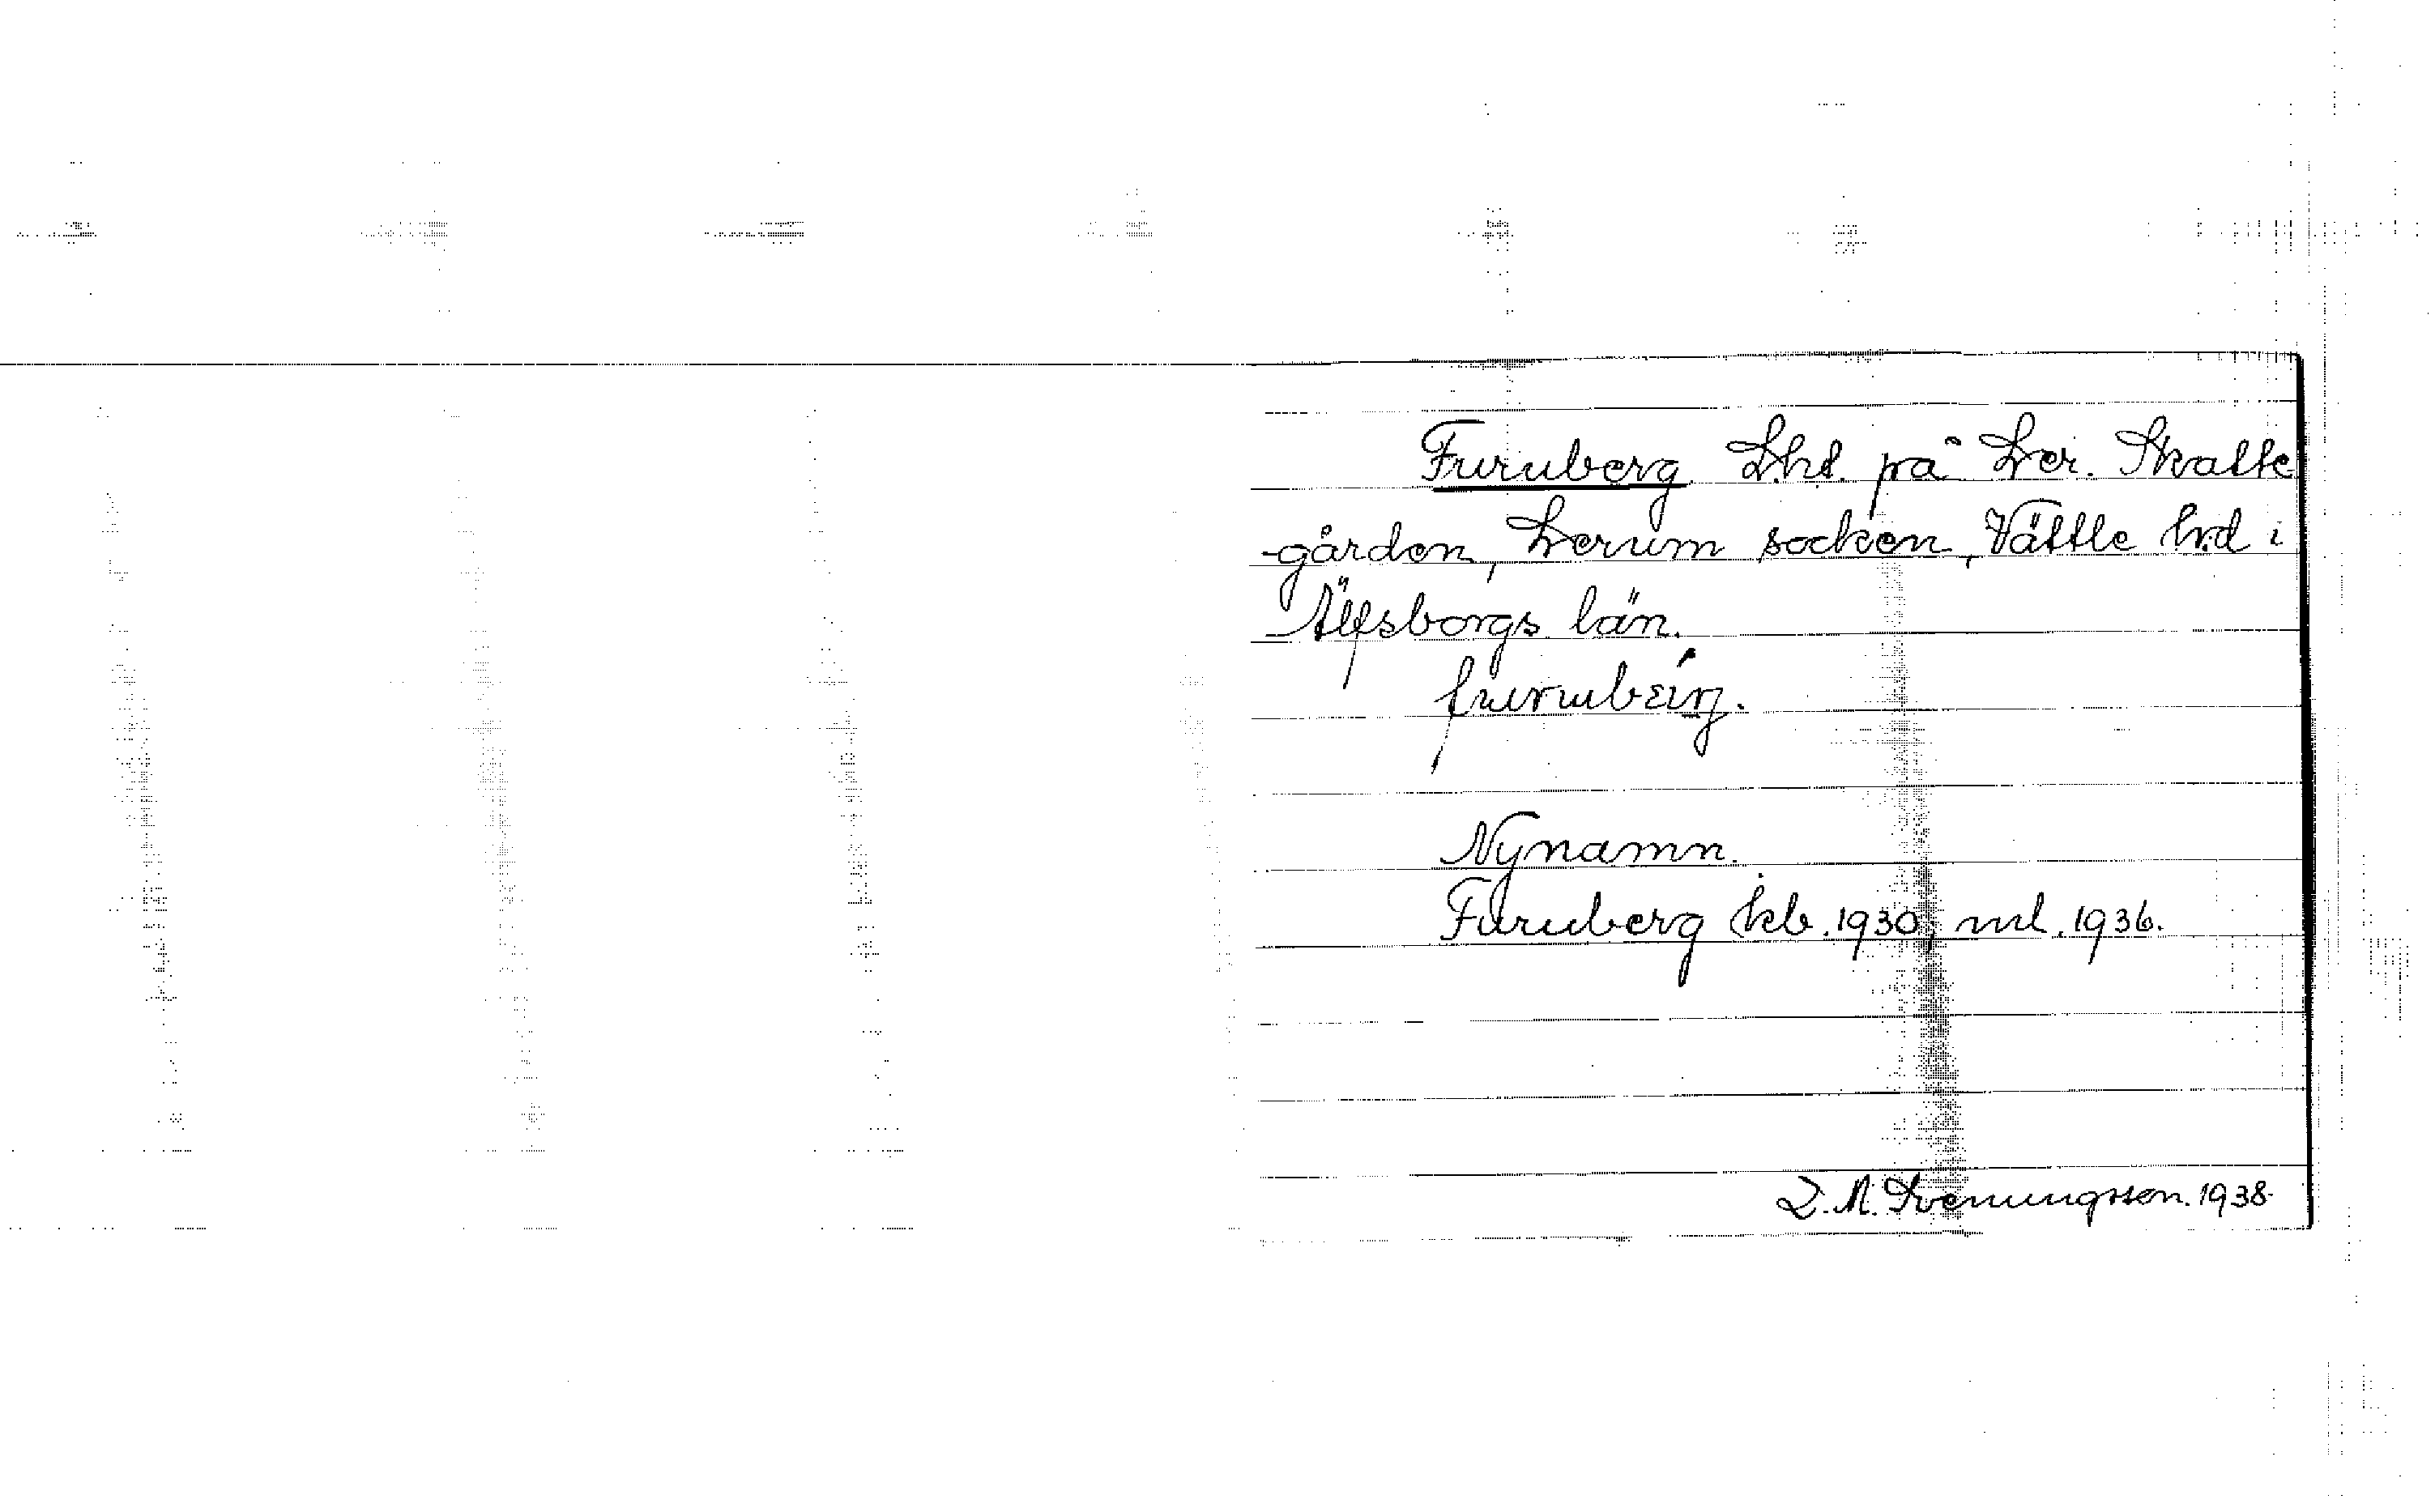 Furuberg Lht. på Ler. Skatte
-gården, Lerum socken, Vättle hd i
Älfsborgs län.
Nynamn.
Furuberg kb. 1930, ml. 1936.
Svenungsson. 1938